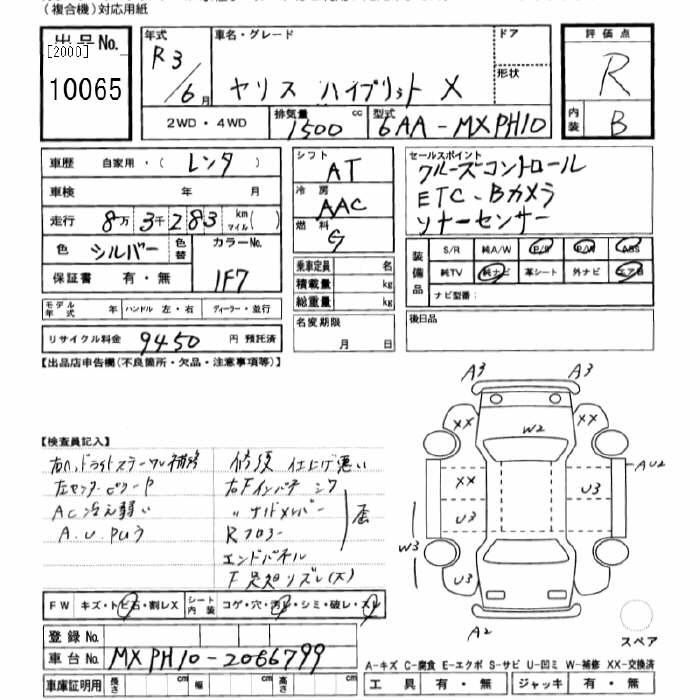 (複合機)対応用紙
出品No.
[2000]
10065
年式 R3/6月
車名・グレード ヤリス ハイブリッド X
ドア
形状
評価点 R
内装 B
2WD・4WD
排気量 1500 cc
型式 6AA-MXPH10
車歴 自家用・(レンタ)
車検 年 月
走行 8万3千283 km マイル( )
色 シルバー 色替
カラーNo. 1F7
保証書 有・無
シフト AT
冷房 AAC
燃料 G
乗車定員 名
積載量 kg
総重量 kg
セールスポイント
クルーズコントロール
ETC-Bカメラ
ソナーセンサー
装備品 S/R 純A/W P/S P/W ABS
純TV 純ナビ 革シート 外ナビ エアB
ナビ型番:
モデル年式 年 ハンドル 左・右 ディーラー・並行
リサイクル料金 9450 円 預託済
名変期限
月 日
後日品
【出品店申告欄(不良箇所・欠品・注意事項等)】
【検査員記入】
AC冷え弱い
修復 仕上げ悪い
右Fインパネ
〃サイドメンバー
Rフロアー
エンドパネル
歪
A3 A3
XX W2 XX
AU2
XX U3
U3
W3
U3 U3
A2
FW キズ・トビ石・割レX シート内装 コゲ・穴・汚レ・シミ・破レ・スレ
登録No.
車台No. MXPH10-2066799
車庫証明用 長さ cm 幅 cm 高さ cm
スペア
A-キズ C-腐食 E-エクボ S-サビ U-凹ミ W-補修 XX-交換済
工具 有・無 ジャッキ 有・無